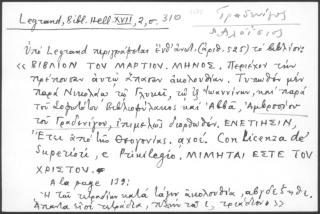 Legrand, Bibl. Hell. XVII, 2, σ. 310
Γραδενίγος
Ἀλοΐσιος
Ὑπὸ Legrand περιγράφεται ἐνθ' ἀνωτ. (ἀριθ. 525) τὸ βιβλίον:
« ΒΙΒΛΙΟΝ ΤΟΥ ΜΑΡΤΙΟΥ ΜΗΝΟΣ, Περιέχον τὴν
πρέπουσαν αὐτῷ ἅπασαν ἀκολουθίαν. Τυπωθὲν μὲν
παρὰ Νικολάῳ τῷ Γλυκεῖ, τῷ ἐξ Ἰωαννίνων, καὶ παρὰ
τοῦ Σοφωτάτου Βιβλιοφύλακος καὶ Ἀββᾶ, Ἀμβροσίου
τοῦ Γραδενίγου, ἐπιμελῶς διορθωθέν. ΕΝΕΤΙΗΣΙΝ,
Ἔτει ἀπὸ τῆς Θεογονίας, αχοί. Con Licenza de
Superiori, e Priuilegio. ΜΙΜΗΤΑΙ ΕΣΤΕ ΤΟΥ
ΧΡΙΣΤΟΥ.
A la page 139:
« Ἡ τῶν τετραδίων κατὰ τάξιν ἀκολουθία, αβγδεζηθι.
Ἅπαντα εἰσὶ τετράδια, πλὴν τοῦ ι, τριάδιον »